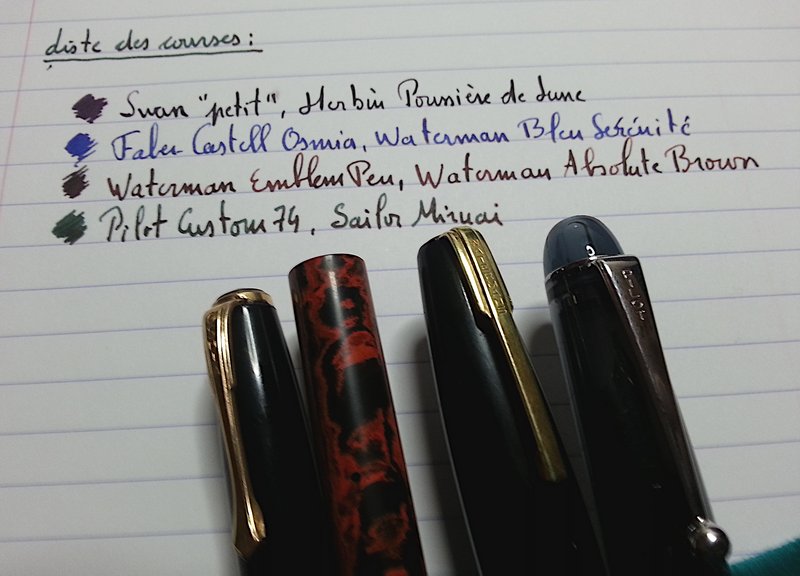 liste des courses :
Swan "petit", Herbin Poussière de Lune
Faber Castell Osmia, Waterman Bleu Sérénité
Waterman Emblem Pen, Waterman Absolute Brown
Pilot Custom 74, Sailor Miruai
PILOT